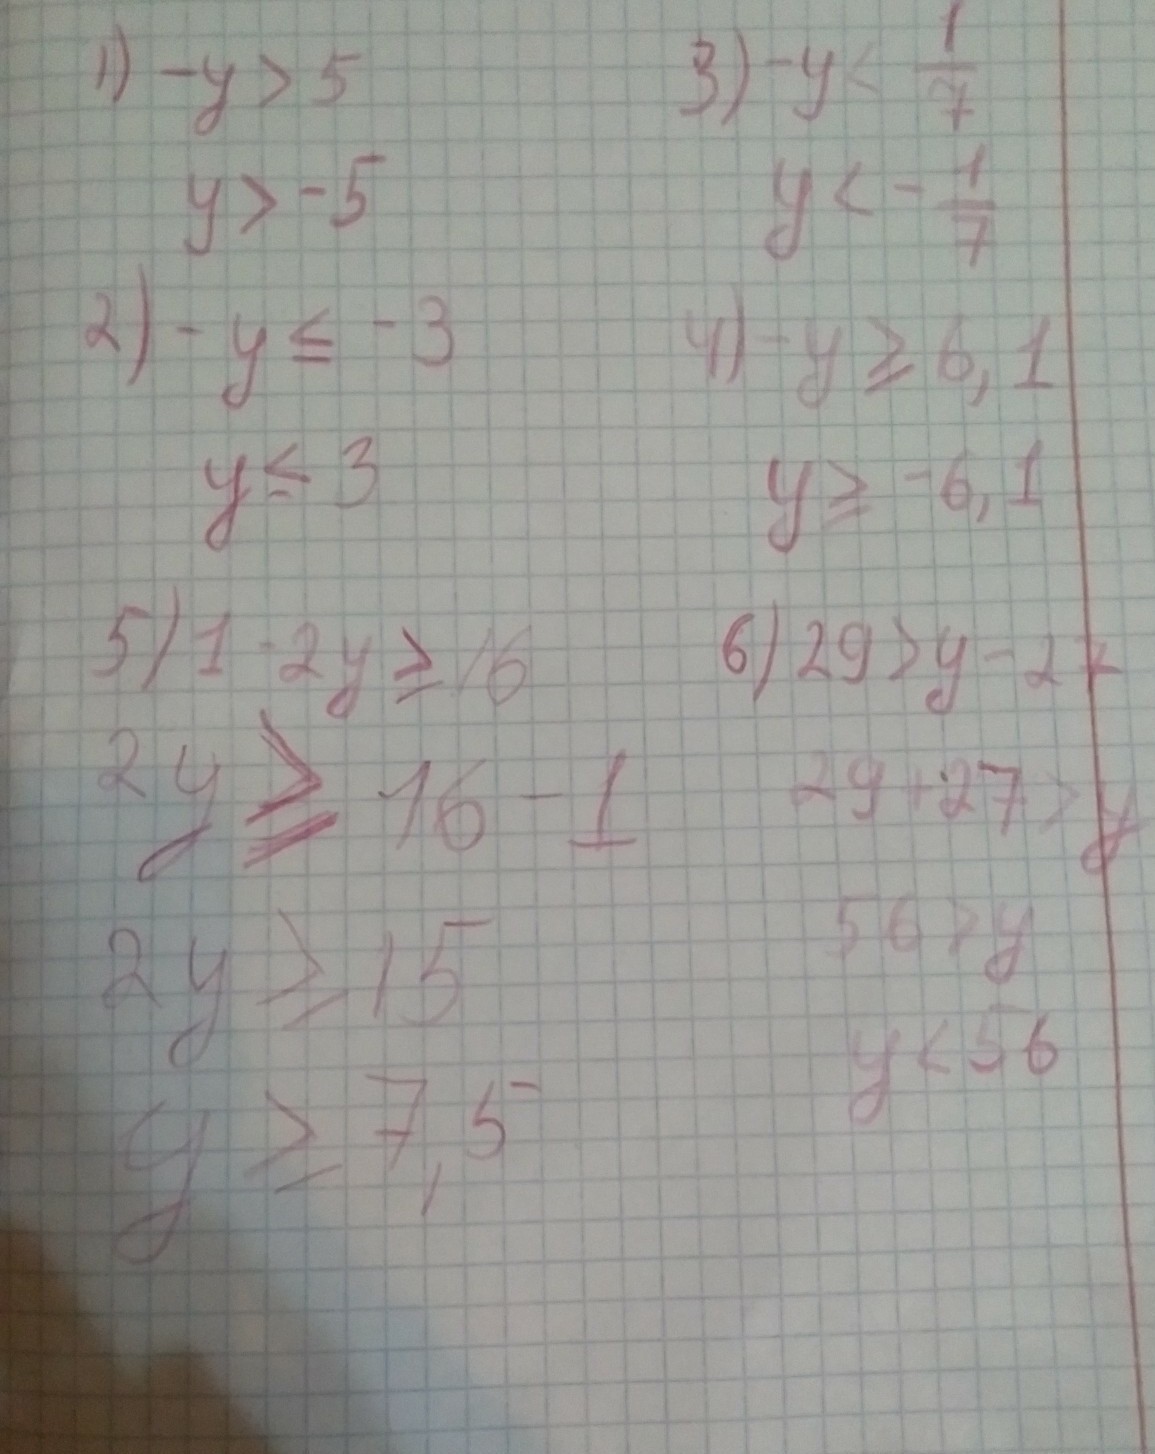 1) -y > 5
y > -5
2) - y ≤ -3
y ≤ 3
3) -y < 1/7
y < - 1/7
4) -y ≥ 6,1
y ≥ -6,1
5) 1 - 2y ≥ 16
2y ≥ 16 - 1
2y ≥ 15
y ≥ 7,5
6) 29 > y - 27
29 + 27 > y
56 > y
y < 56